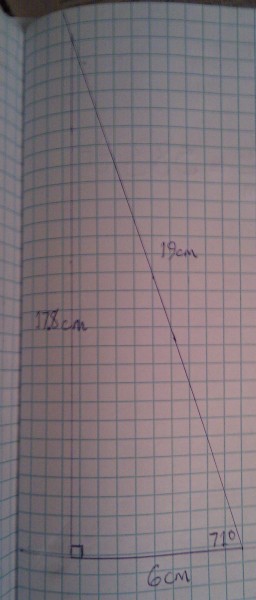 19cm
17.8cm
71°
6cm